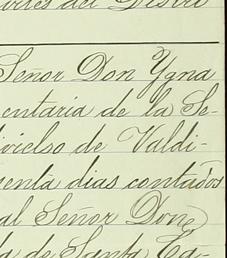 Señor Don Ygna
entaria de la Se-
vielso de Valdi-
senta dias contados
al Señor Don
da de Santa Ca-